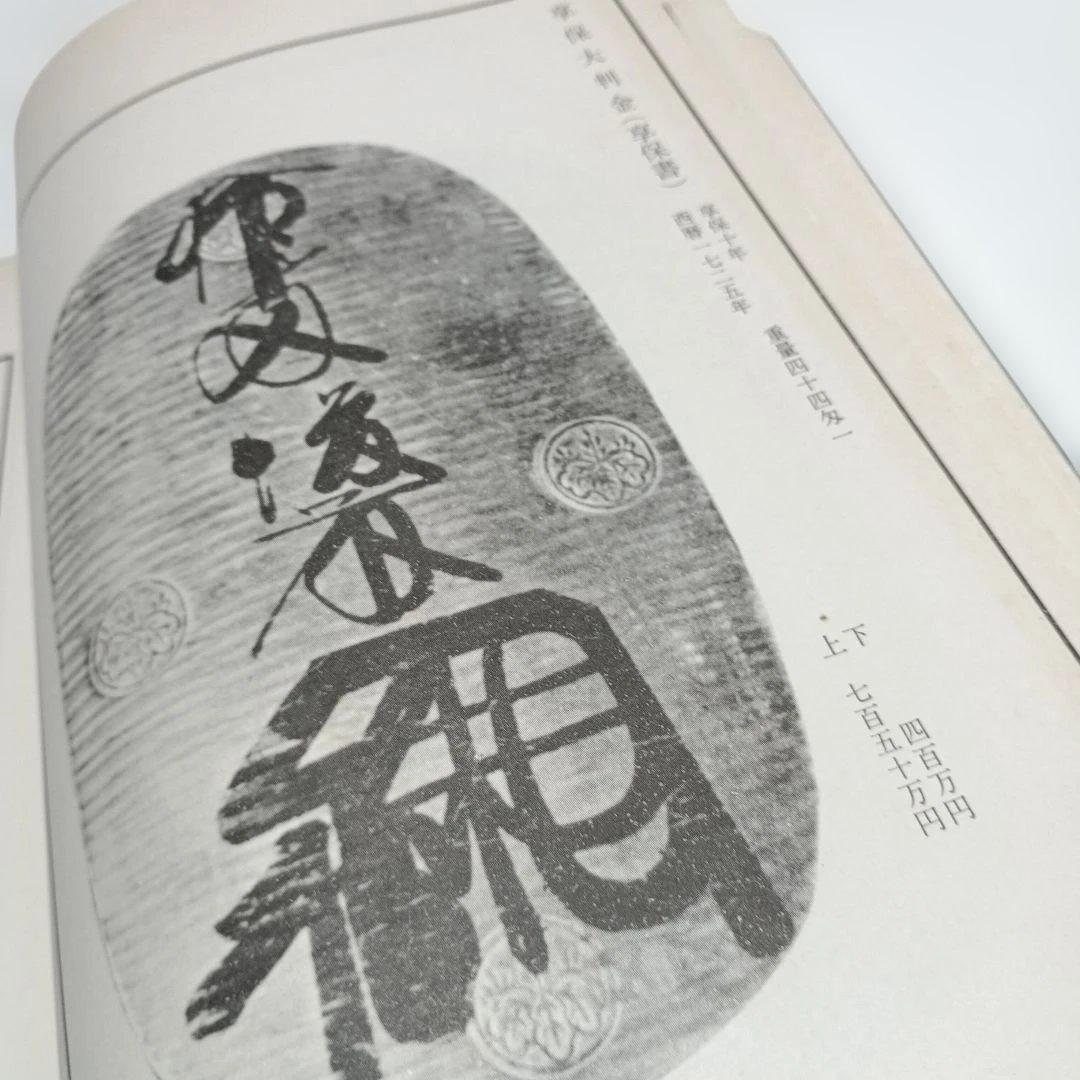 享保大判金(享保書)
享保十年
西暦一七二五年
重量四十四匁一
下 四百万円
上 七百五十万円